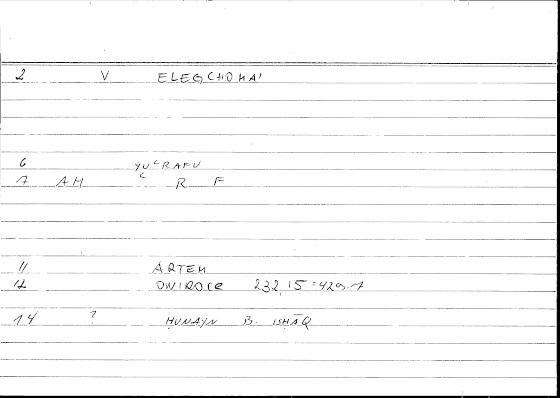 2 V ELEGCHOMAI
6 YUᶜRAFU
7 AH ᶜ R F
11 ARTEM
12 ONIROCR 232,15 = 429.7
14 ? ḤUNAYN B. ISḤĀQ